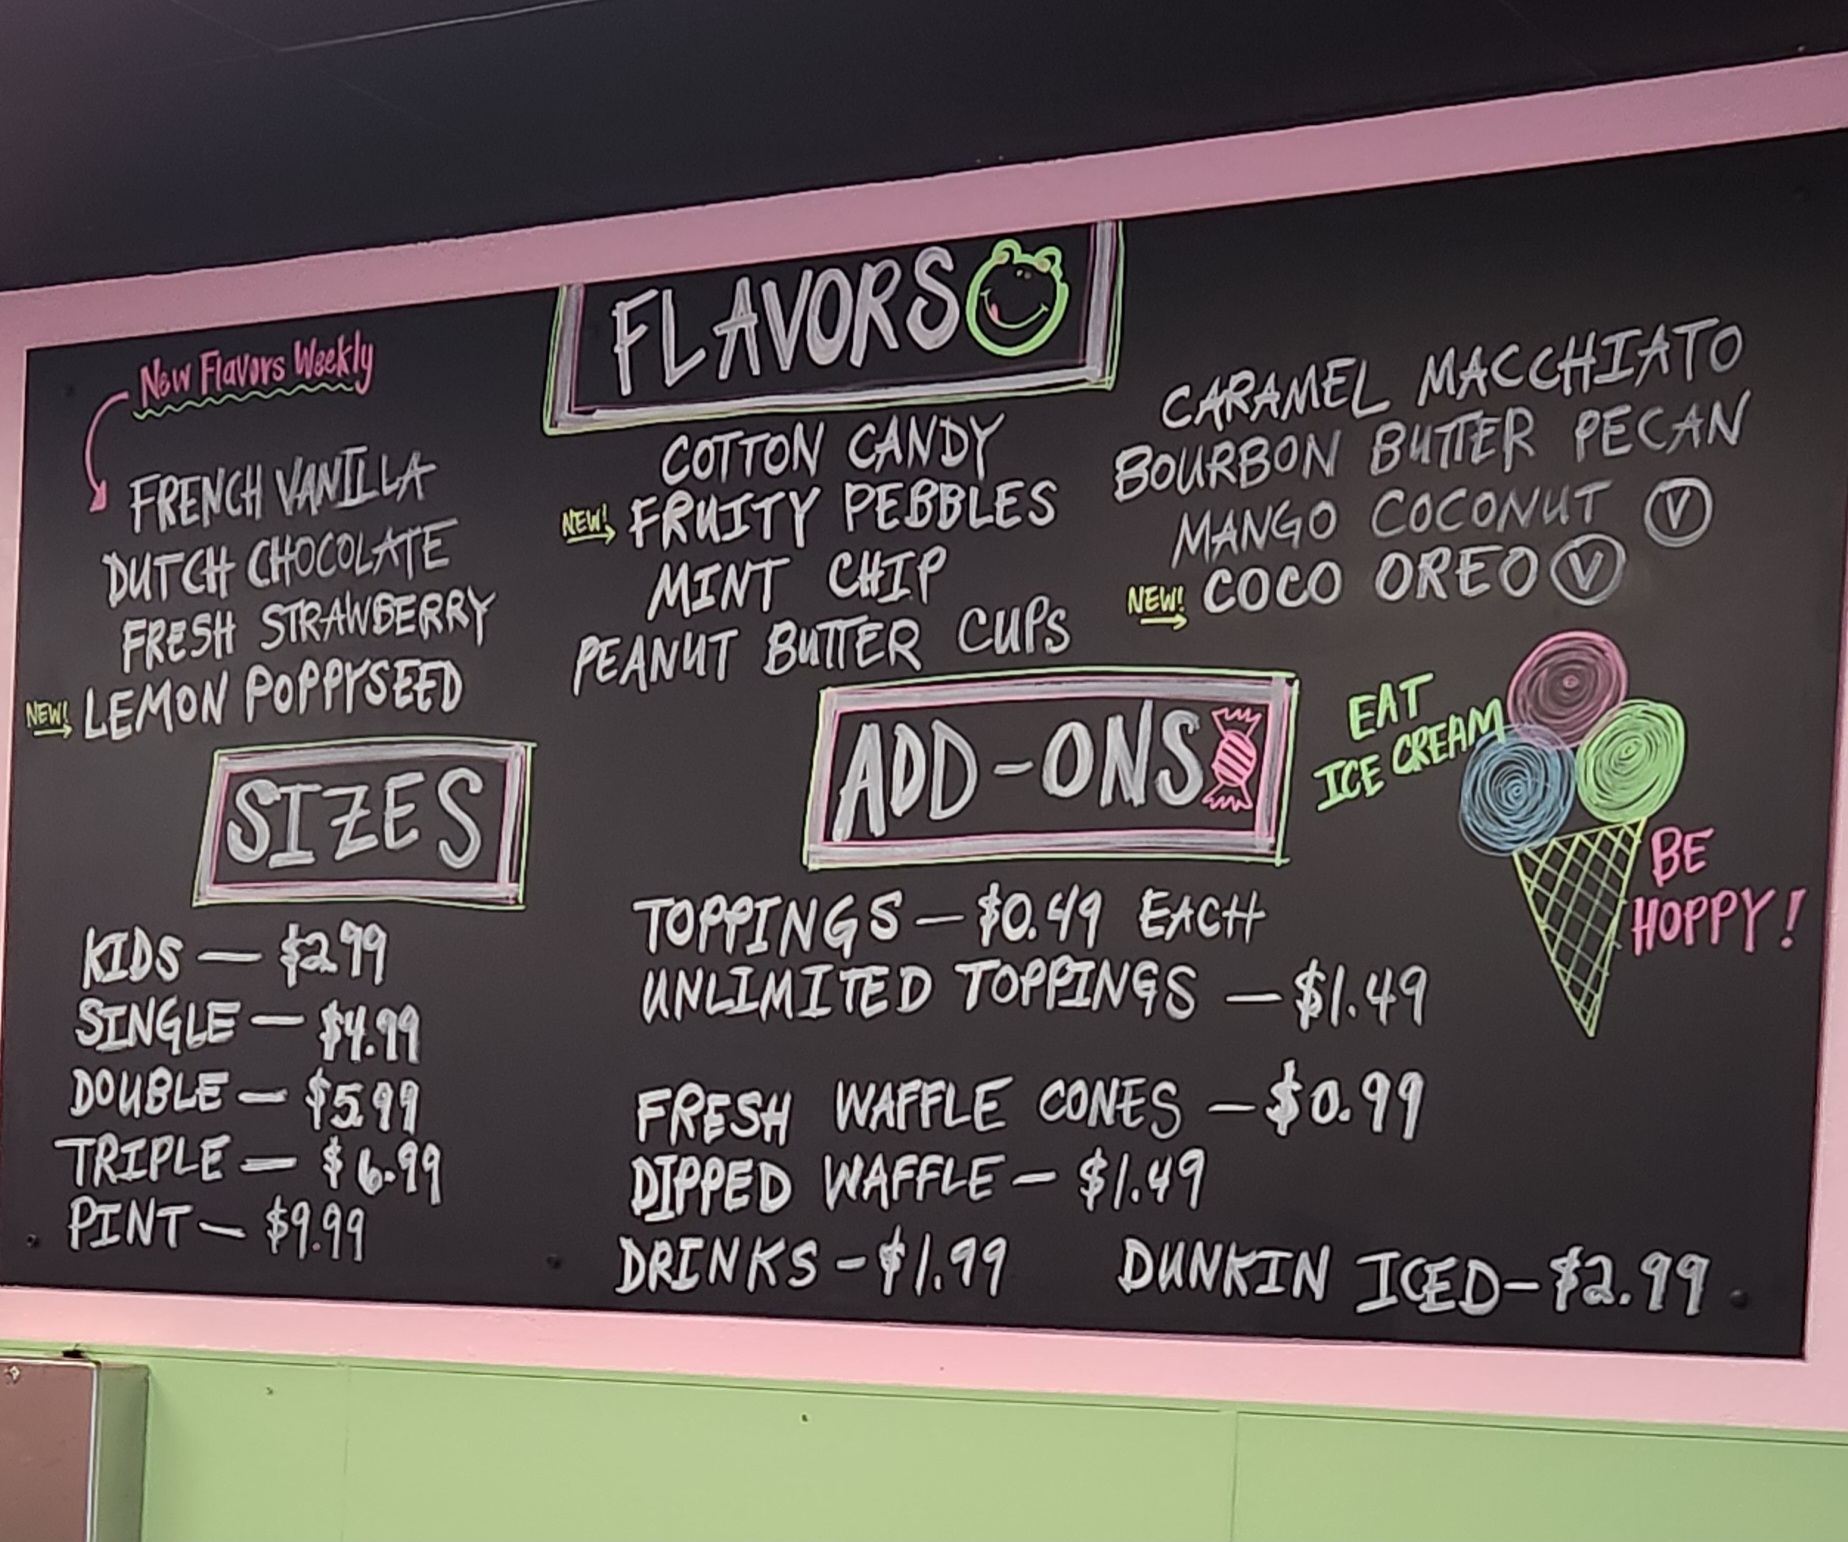 FLAVORS
New Flavors Weekly
FRENCH VANILLA
DUTCH CHOCOLATE
FRESH STRAWBERRY
NEW! LEMON POPPYSEED
COTTON CANDY
NEW! FRUITY PEBBLES
MINT CHIP
PEANUT BUTTER CUPS
CARAMEL MACCHIATO
BOURBON BUTTER PECAN
MANGO COCONUT V
NEW! COCO OREO V
SIZES
KIDS — $2.99
SINGLE — $4.99
DOUBLE — $5.99
TRIPLE — $6.99
PINT — $9.99
ADD-ONS
TOPPINGS — $0.49 EACH
UNLIMITED TOPPINGS — $1.49
FRESH WAFFLE CONES — $0.99
DIPPED WAFFLE — $1.49
DRINKS - $1.99 DUNKIN ICED - $2.99
EAT
ICE CREAM
BE
HOPPY!